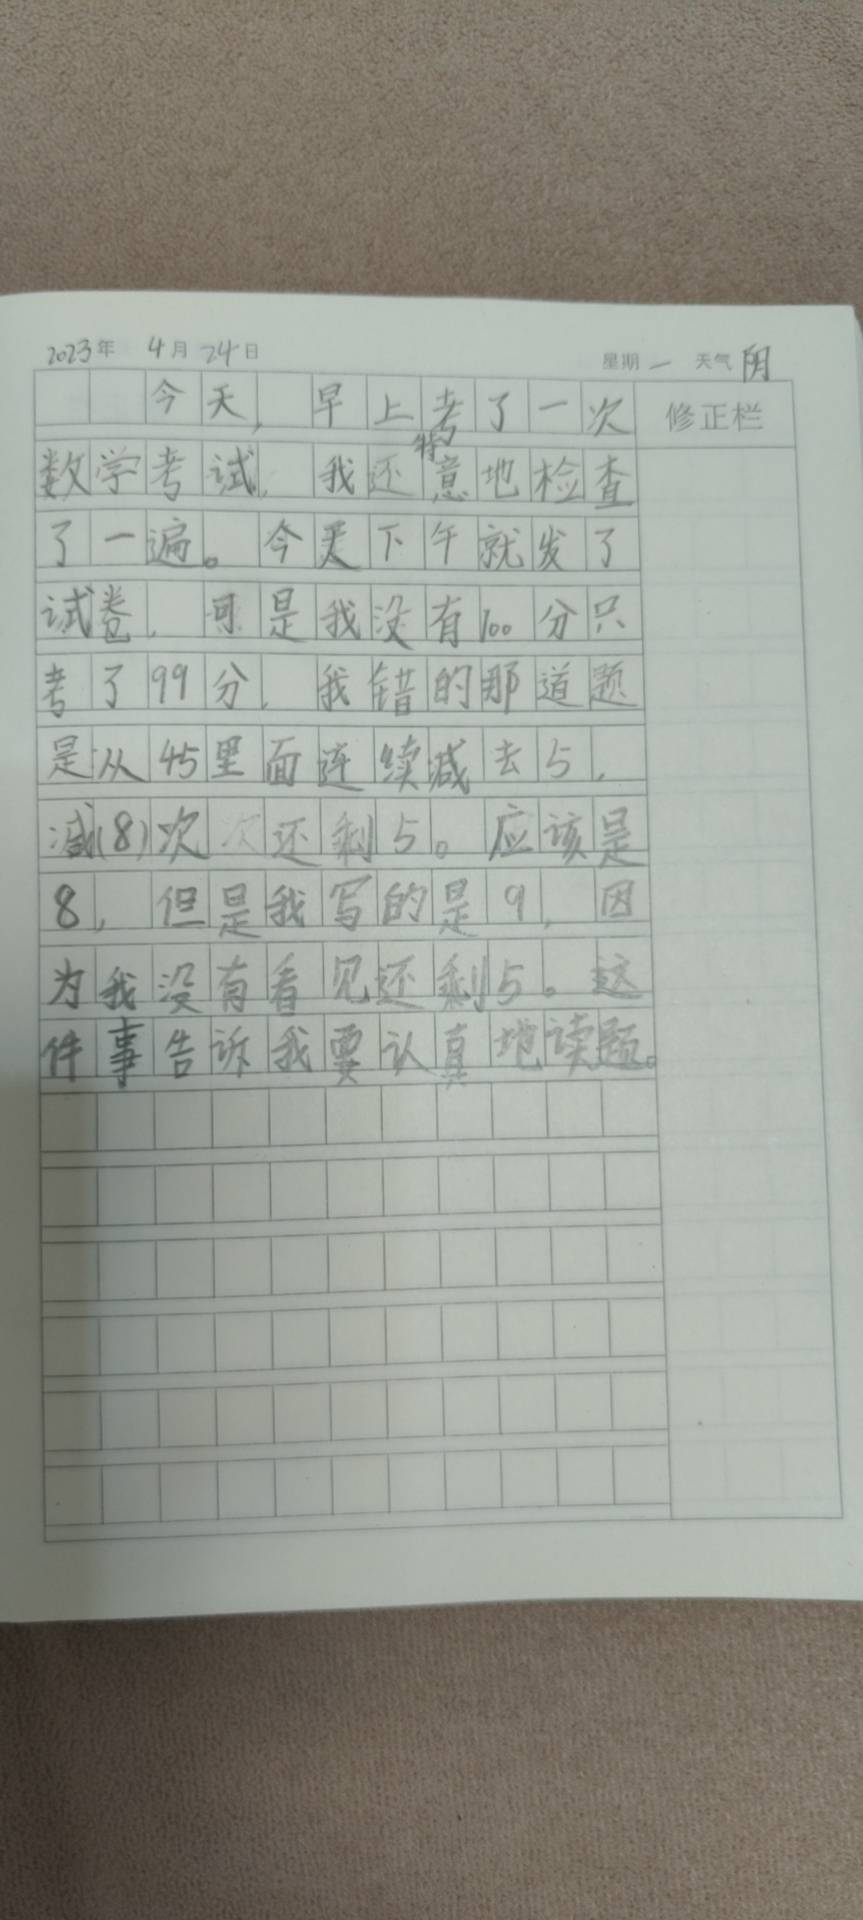 2023年 4月24日 星期一 天气阴
今天,早上考了一次 修正栏
数学考试,我还特意地检查
了一遍。今天下午就发了
试卷,可是我没有100分只
考了99分,我错的那道题
是从45里面连续减去5,
减(8)次次还剩5。应该是
8,但是我写的是9,因
为我没有看见还剩5。这
件事告诉我要认真地读题。